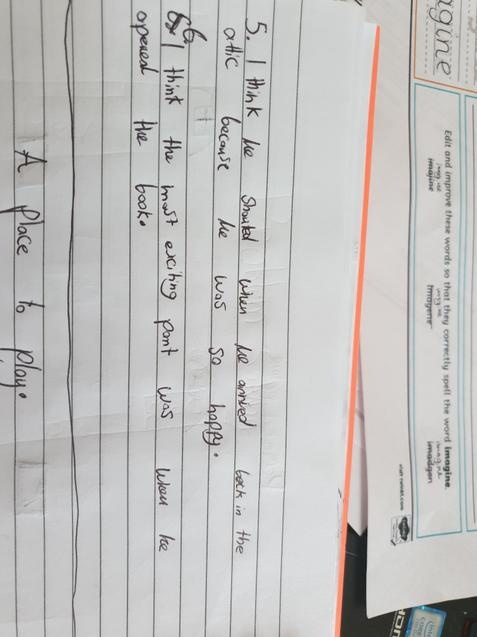 agine
Edit and improve these words so that they correctly spell the word imagine.
imajine
imagene
imadgen
visit twinkl.com
5. I think he shouted when he arrived back in the
attic because he was so happy.
6. I think the most exciting part was when he
opened the book.
A place to play.